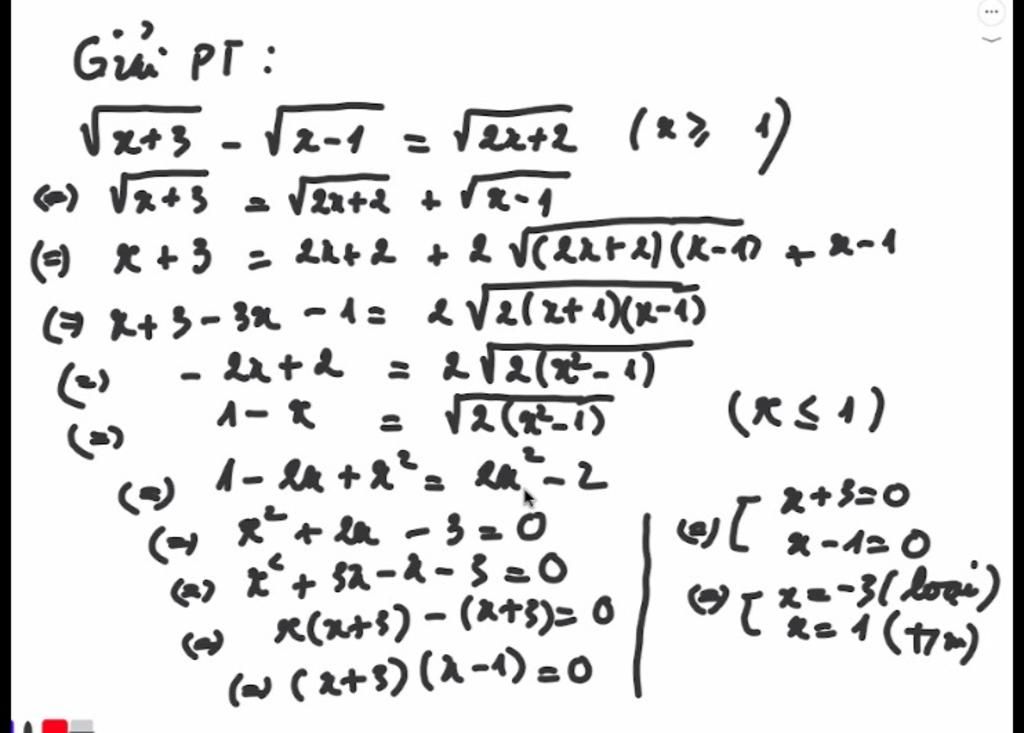 Giải PT:
√(x+3) - √(x-1) = √(2x+2) (x ≥ 1)
(=) √(x+3) = √(2x+2) + √(x-1)
(=) x + 3 = 2x+2 + 2√((2x+2)(x-1)) + x-1
(=) x+3-3x-1 = 2√(2(x+1)(x-1))
(=) -2x+2 = 2√(2(x²-1))
(=) 1-x = √(2(x²-1)) (x ≤ 1)
(=) 1-2x+x² = 2x²-2
(=) x²+2x-3=0
(=) x²+3x-x-3=0
(=) x(x+3)-(x+3)=0
(=) (x+3)(x-1)=0
(=) [ x+3=0
x-1=0
(=) [ x=-3 (loại)
x=1 (tm)